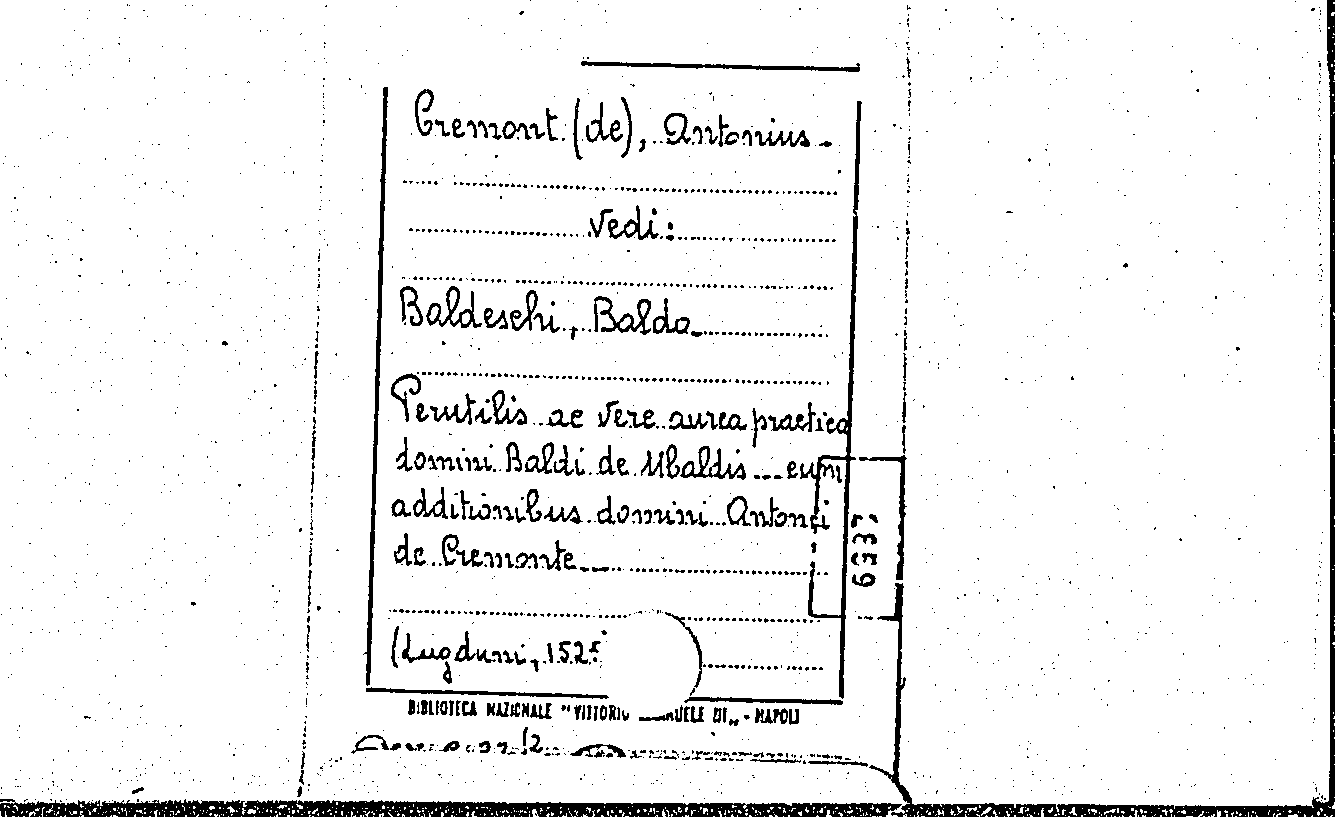 Cremont (de), Antonius.
Vedi:
Baldeschi, Baldo
Perutilis ac vere aurea practica
domini Baldi de Ubaldis ... cum
additionibus domini Antonii
de Cremonte ...
(Lugduni, 1525
BIBLIOTECA NAZIONALE "VITTORIO EMANUELE III„ - NAPOLI
6337